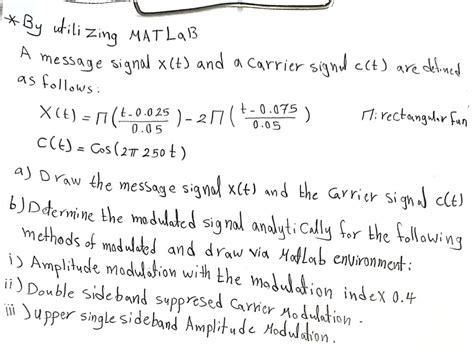 *By utilizing MATLaB
A message signal x(t) and a carrier signal c(t) are defined
as follows:
X(t) = Π((t-0.025)/0.05) - 2Π((t-0.075)/0.05) Π: rectangular fun
C(t) = Cos(2π 250t)
a) Draw the message signal x(t) and the carrier signal c(t)
b) Determine the modulated signal analytically for the following
methods of modulated and draw via Matlab environment:
i) Amplitude modulation with the modulation index 0.4
ii) Double sideband suppresed Carrier Modulation.
iii) upper single sideband Amplitude Modulation.